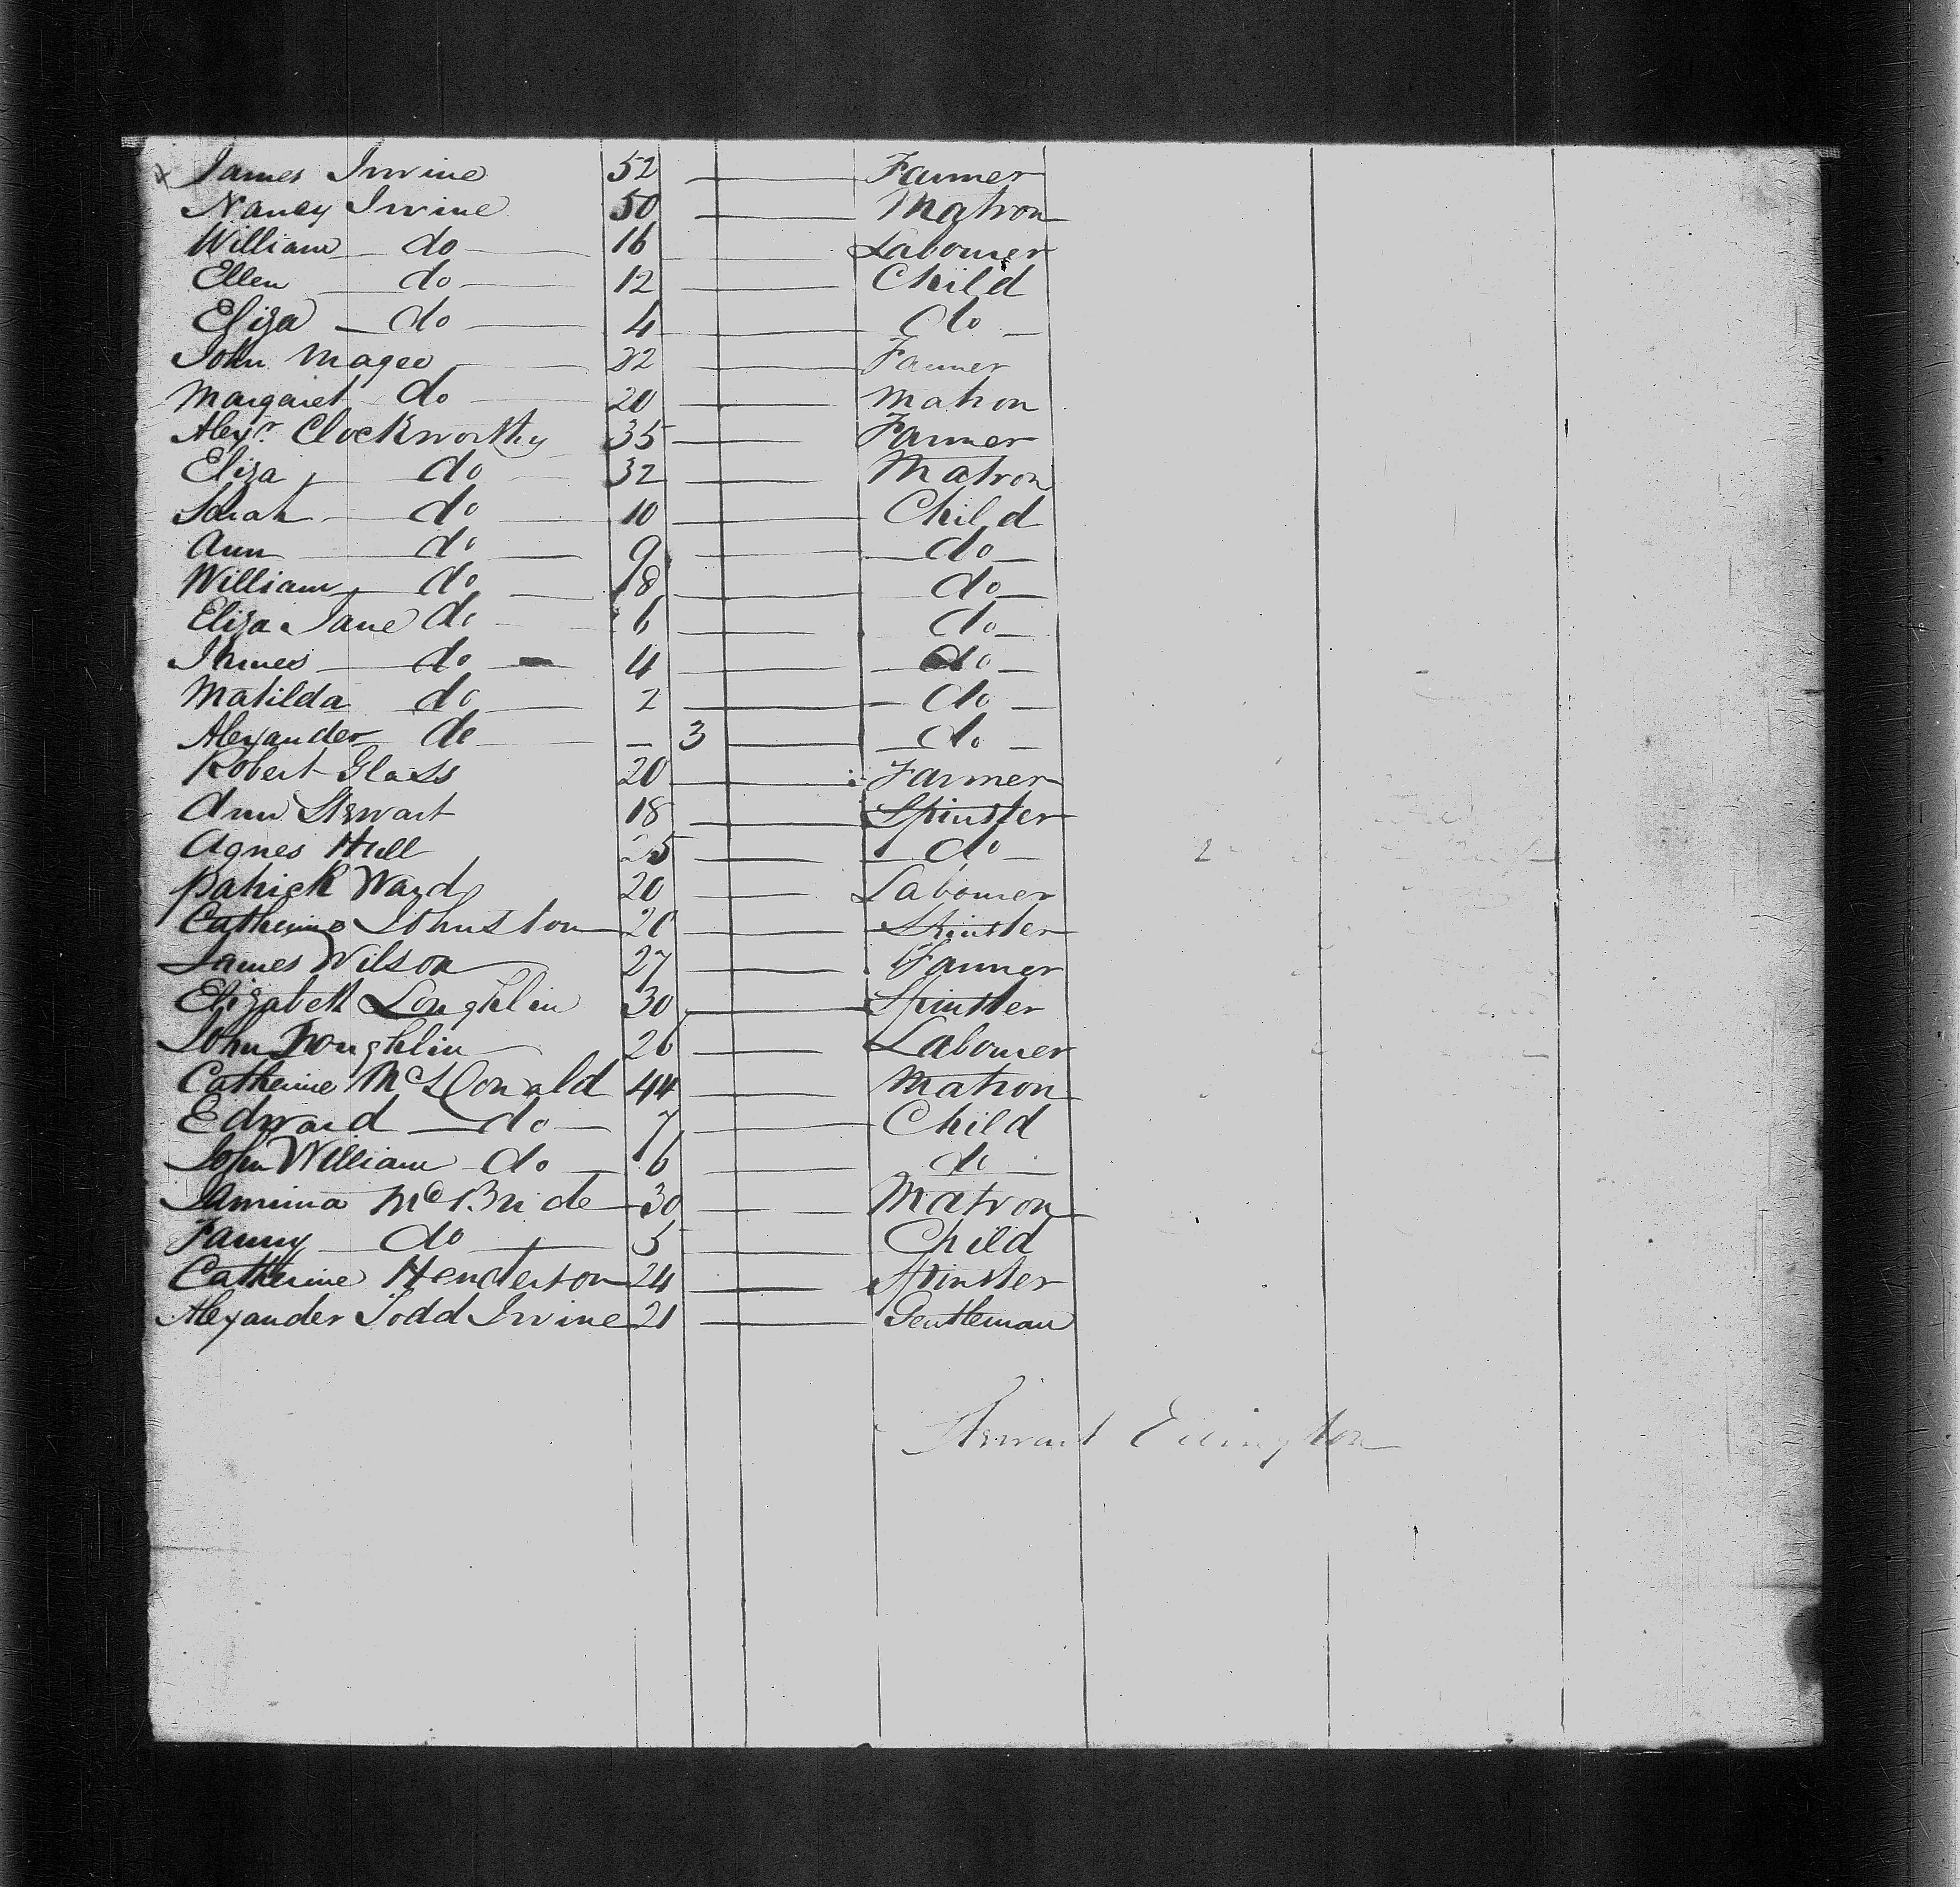 x James Irvine 52 Farmer
Nancy Irvine 50 Matron
William do 16 Labourer
Ellen do 12 Child
Eliza do 4 do
John Magee 22 Farmer
Margaret do 20 Matron
Alexr. Clockworthy 35 Farmer
Eliza do 32 Matron
Sarah do 10 Child
Ann do 9 do
William do 8 do
Eliza Jane do 6 do
James do 4 do
Matilda do 2 do
Alexander do 3 do
Robert Glass 20 Farmer
Ann Stewart 18 Spinster
Agnes Hull 25 do
Patrick Ward 20 Labourer
Catherine Johnston 20 Spinster
James Wilson 27 Farmer
Elizabeth Loughlin 30 Spinster
John Loughlin 26 Labourer
Catherine McDonald 44 Matron
Edward do 7 Child
John William do 6 do
Jamima McBride 30 Matron
Fanny do 5 Child
Catherine Henderson 24 Spinster
Alexander Todd Irvine 21 Gentleman
Stewart